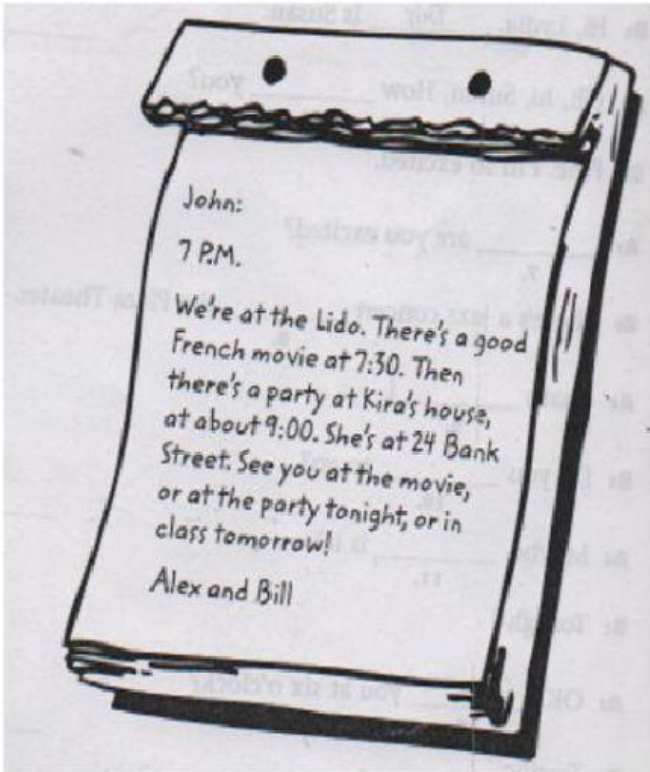 John:
7 P.M.
We're at the Lido. There's a good
French movie at 7:30. Then
there's a party at Kira's house,
at about 9:00. She's at 24 Bank
Street. See you at the movie,
or at the party tonight, or in
class tomorrow!
Alex and Bill